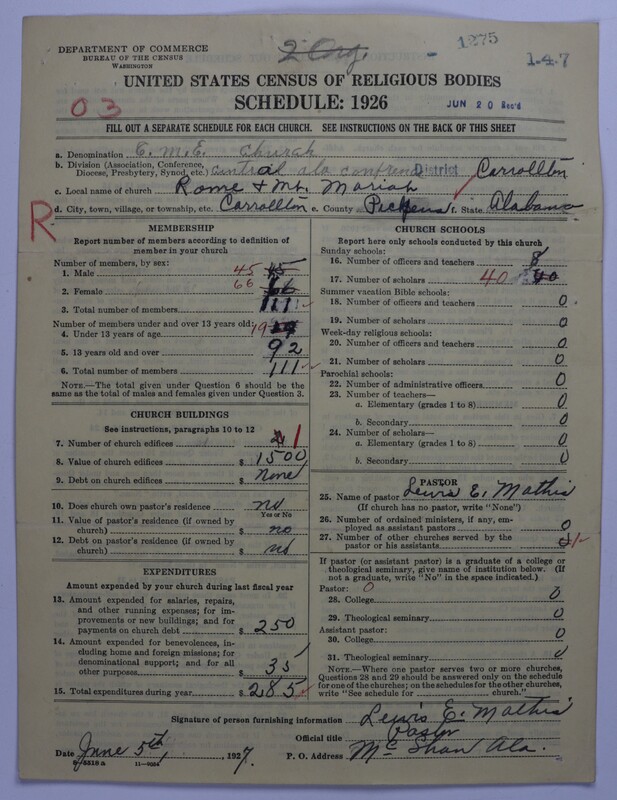 DEPARTMENT OF COMMERCE
BUREAU OF THE CENSUS
WASHINGTON
2 Org.
1275
1-4-7
UNITED STATES CENSUS OF RELIGIOUS BODIES
SCHEDULE: 1926
03
JUN 20 Rec'd
FILL OUT A SEPARATE SCHEDULE FOR EACH CHURCH. SEE INSTRUCTIONS ON THE BACK OF THIS SHEET
a. Denomination C. M. E. Church
b. Division (Association, Conference, Diocese, Presbytery, Synod, etc.) Central ala conference District Carrollton
c. Local name of church Rome & Mt. Moriah
d. City, town, village, or township, etc. Carrollton e. County Pickens f. State Alabama
R
MEMBERSHIP
Report number of members according to definition of
member in your church
Number of members, by sex:
1. Male 45 45
2. Female 66 66
3. Total number of members 111
Number of members under and over 13 years old:
4. Under 13 years of age 19 19
5. 13 years old and over 92
6. Total number of members 111
NOTE.—The total given under Question 6 should be the
same as the total of males and females given under Question 3.
CHURCH BUILDINGS
See instructions, paragraphs 10 to 12
7. Number of church edifices 2 1
8. Value of church edifices $ 1500
9. Debt on church edifices $ None
10. Does church own pastor's residence no
Yes or No
11. Value of pastor's residence (if owned by
church) $ no
12. Debt on pastor's residence (if owned by
church) $ no
EXPENDITURES
Amount expended by your church during last fiscal year
13. Amount expended for salaries, repairs,
and other running expenses; for im-
provements or new buildings; and for
payments on church debt $ 250
14. Amount expended for benevolences, in-
cluding home and foreign missions; for
denominational support; and for all
other purposes $ 35
15. Total expenditures during year $ 285
CHURCH SCHOOLS
Report here only schools conducted by this church
Sunday schools:
16. Number of officers and teachers 8
17. Number of scholars 40 40
Summer vacation Bible schools:
18. Number of officers and teachers 0
19. Number of scholars 0
Week-day religious schools:
20. Number of officers and teachers 0
21. Number of scholars 0
Parochial schools:
22. Number of administrative officers 0
23. Number of teachers—
a. Elementary (grades 1 to 8) 0
b. Secondary 0
24. Number of scholars—
a. Elementary (grades 1 to 8) 0
b. Secondary 0
PASTOR
25. Name of pastor Lewis E. Mathis
(If church has no pastor, write "None")
26. Number of ordained ministers, if any, em-
ployed as assistant pastors 0
27. Number of other churches served by the
pastor or his assistants 1
If pastor (or assistant pastor) is a graduate of a college or
theological seminary, give name of institution below. (If
not a graduate, write "No" in the space indicated.)
Pastor: 0
28. College 0
29. Theological seminary 0
Assistant pastor:
30. College 0
31. Theological seminary 0
NOTE.—Where one pastor serves two or more churches,
Questions 28 and 29 should be answered only on the schedule
for one of the churches; on the schedules for the other churches,
write "See schedule for church."
Signature of person furnishing information Lewis E. Mathis
Official title Pastor
Date June 5th, 1927. P. O. Address Mc Shan Ala.
8-5518 a 11-9034